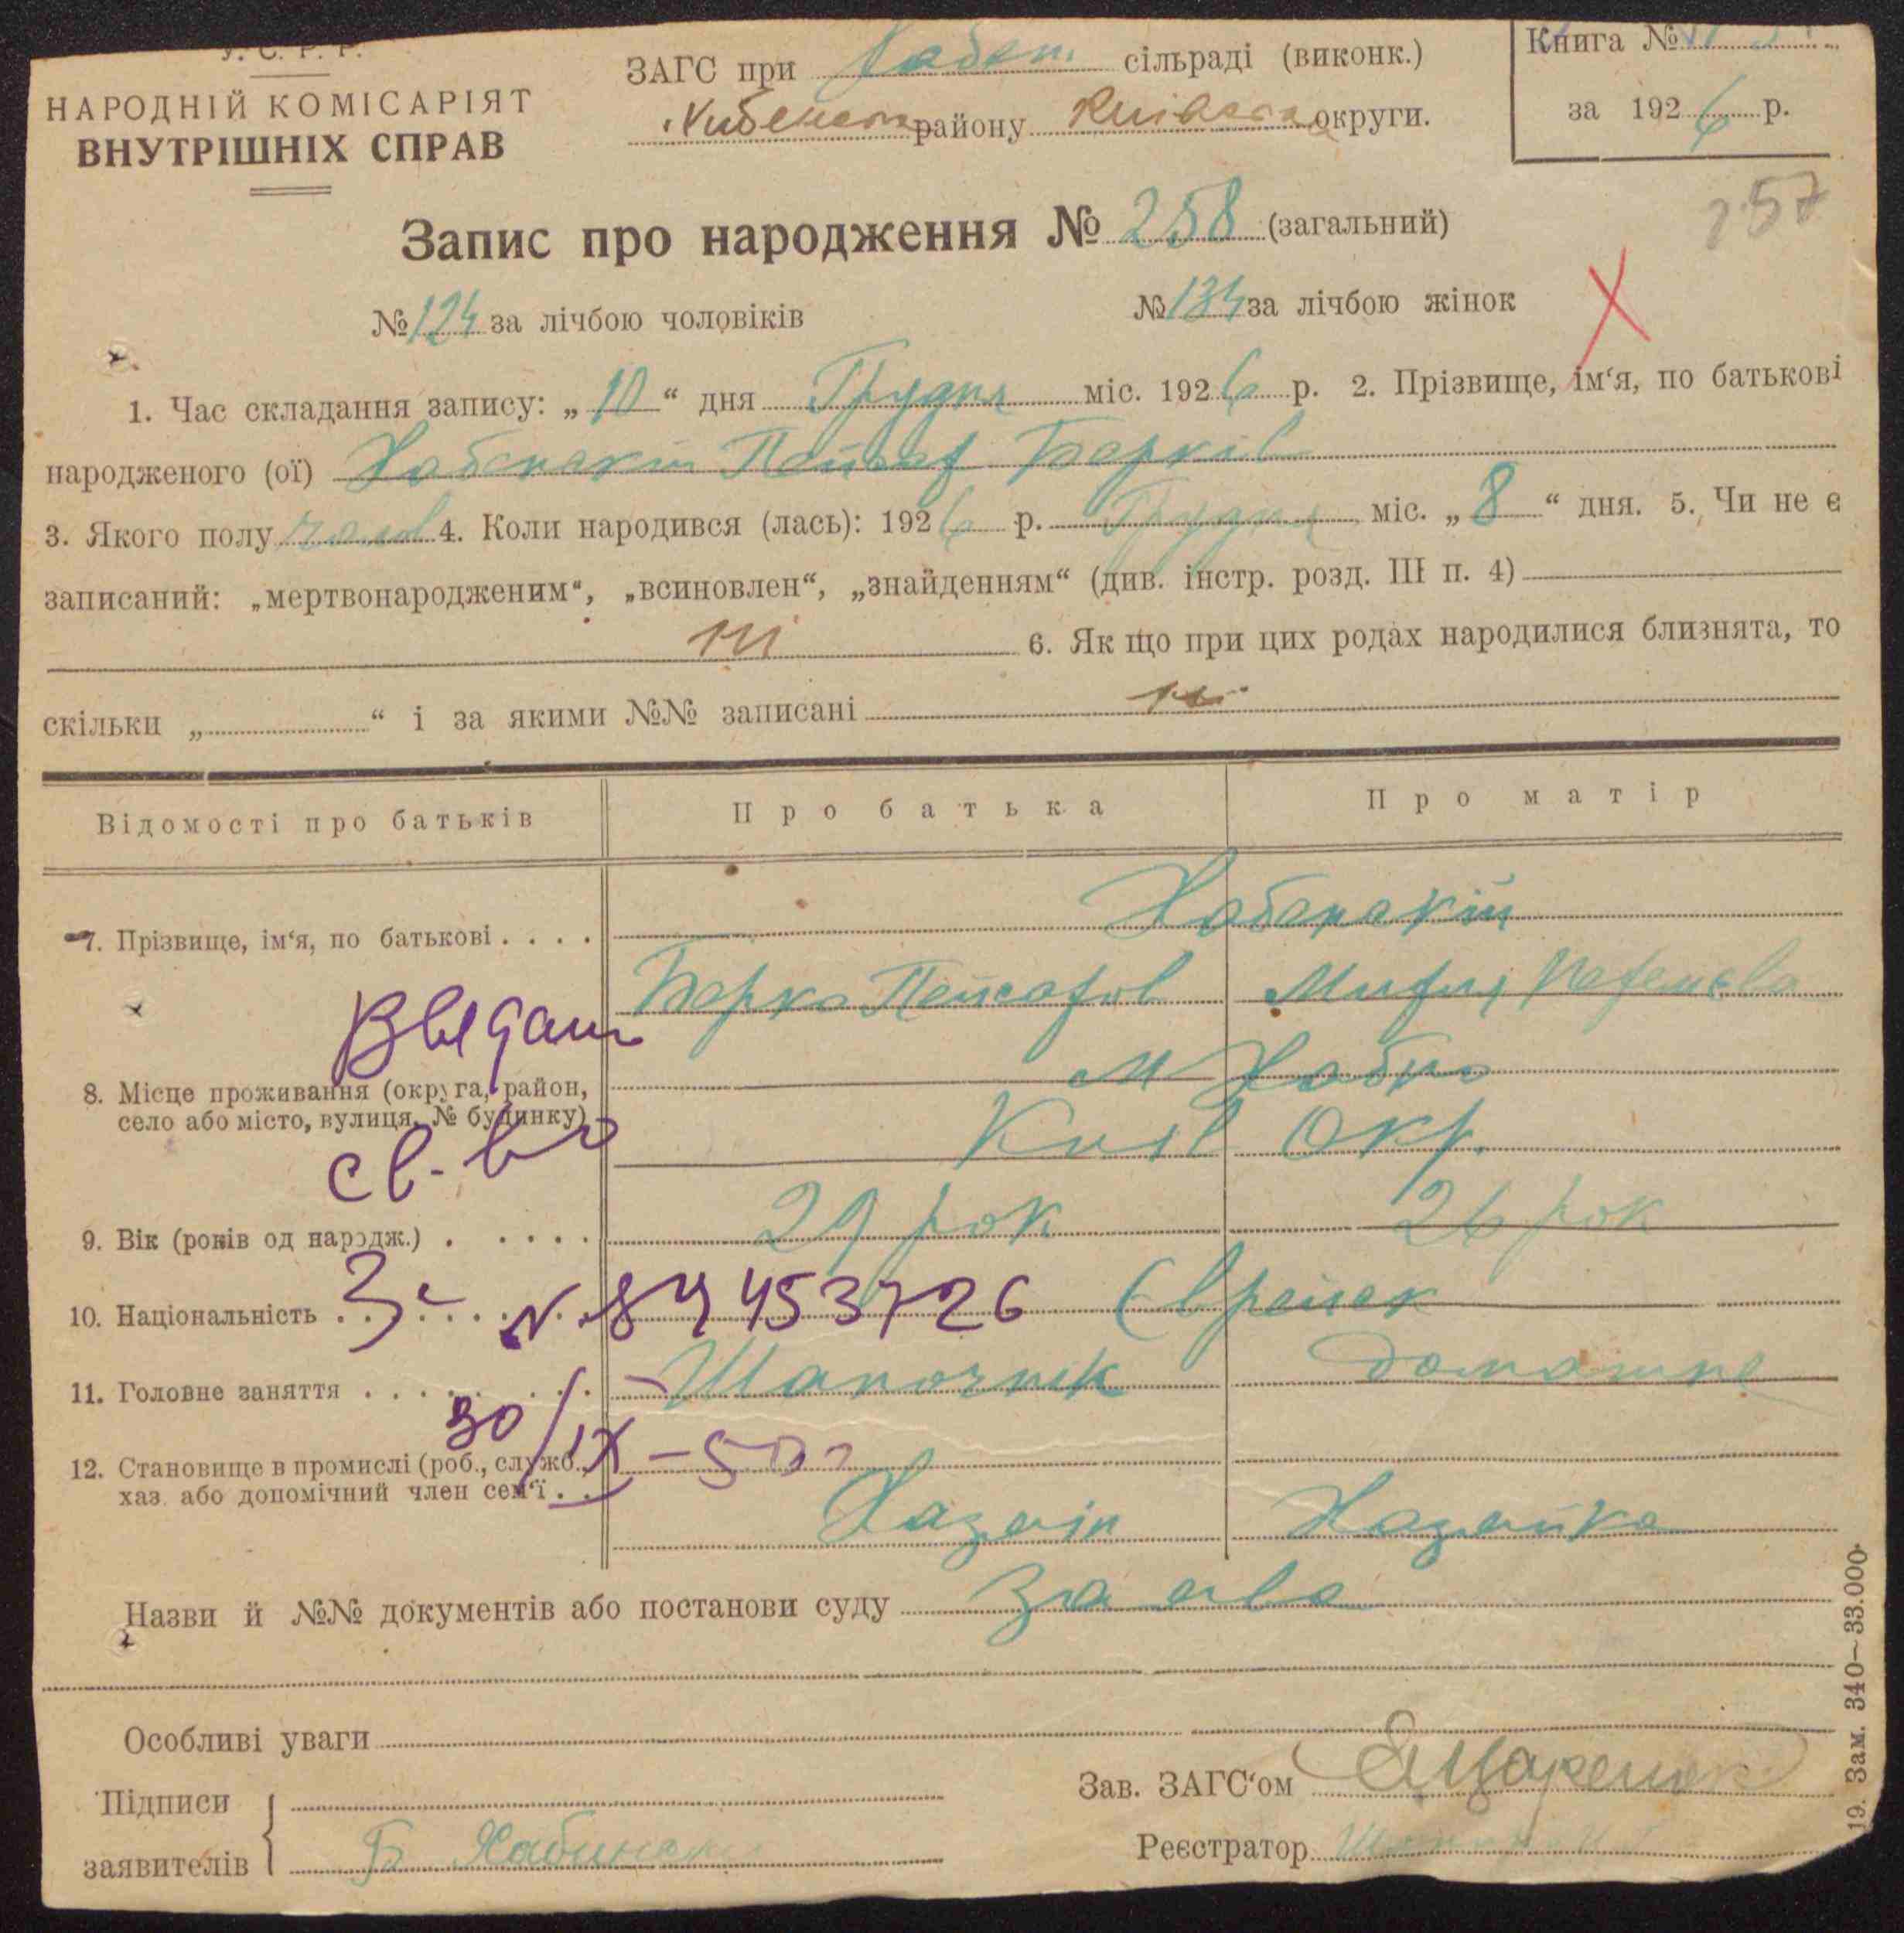 У. С. Р. Р.
НАРОДНІЙ КОМІСАРІЯТ
ВНУТРІШНІХ СПРАВ
ЗАГС при сільраді (виконк.)
району округи.
Книга №
за 1926 р.
257
Запис про народження № 258 (загальний)
№ 124 за лічбою чоловіків № 134 за лічбою жінок
1. Час складання запису: „10“ дня Грудня міс. 1926 р. 2. Прізвище, ім‘я, по батькові
народженого (ої) Хабенский Пейсах Берків
3. Якого полу чолов 4. Коли народився (лась): 1926 р. Грудня міс. „8“ дня. 5. Чи не є
записаний: „мертвонародженим“, „всиновлен“, „знайденням“ (див. інстр. розд. III п. 4)
ні 6. Як що при цих родах народилися близнята, то
скільки „ “ і за якими №№ записані ні
Відомості про батьків Про батька Про матір
7. Прізвище, ім‘я, по батькові . . . . Хабенский
Берко Пейсахов
Выдан
8. Місце проживання (округа, район, м Хабно
село або місто, вулиця, № будинку) Київ Окр.
св-во
9. Вік (років од народж.) . . . . . 29 рок 26 рок
10. Національність . . . . . . . Єврейск
№ 4453726
11. Головне заняття . . . . . . . Шапочник Домашне
30/IX - 50 г
12. Становище в промислі (роб., служб.,
хаз. або допомічний член сем‘ї . . Хазяїн Хазяйка
Назви й №№ документів або постанови суду Заява
Особливі уваги
Підписи
заявителів Б Хабинск
Зав. ЗАГС‘ом
Реєстратор
19. Зам. 340—33.000